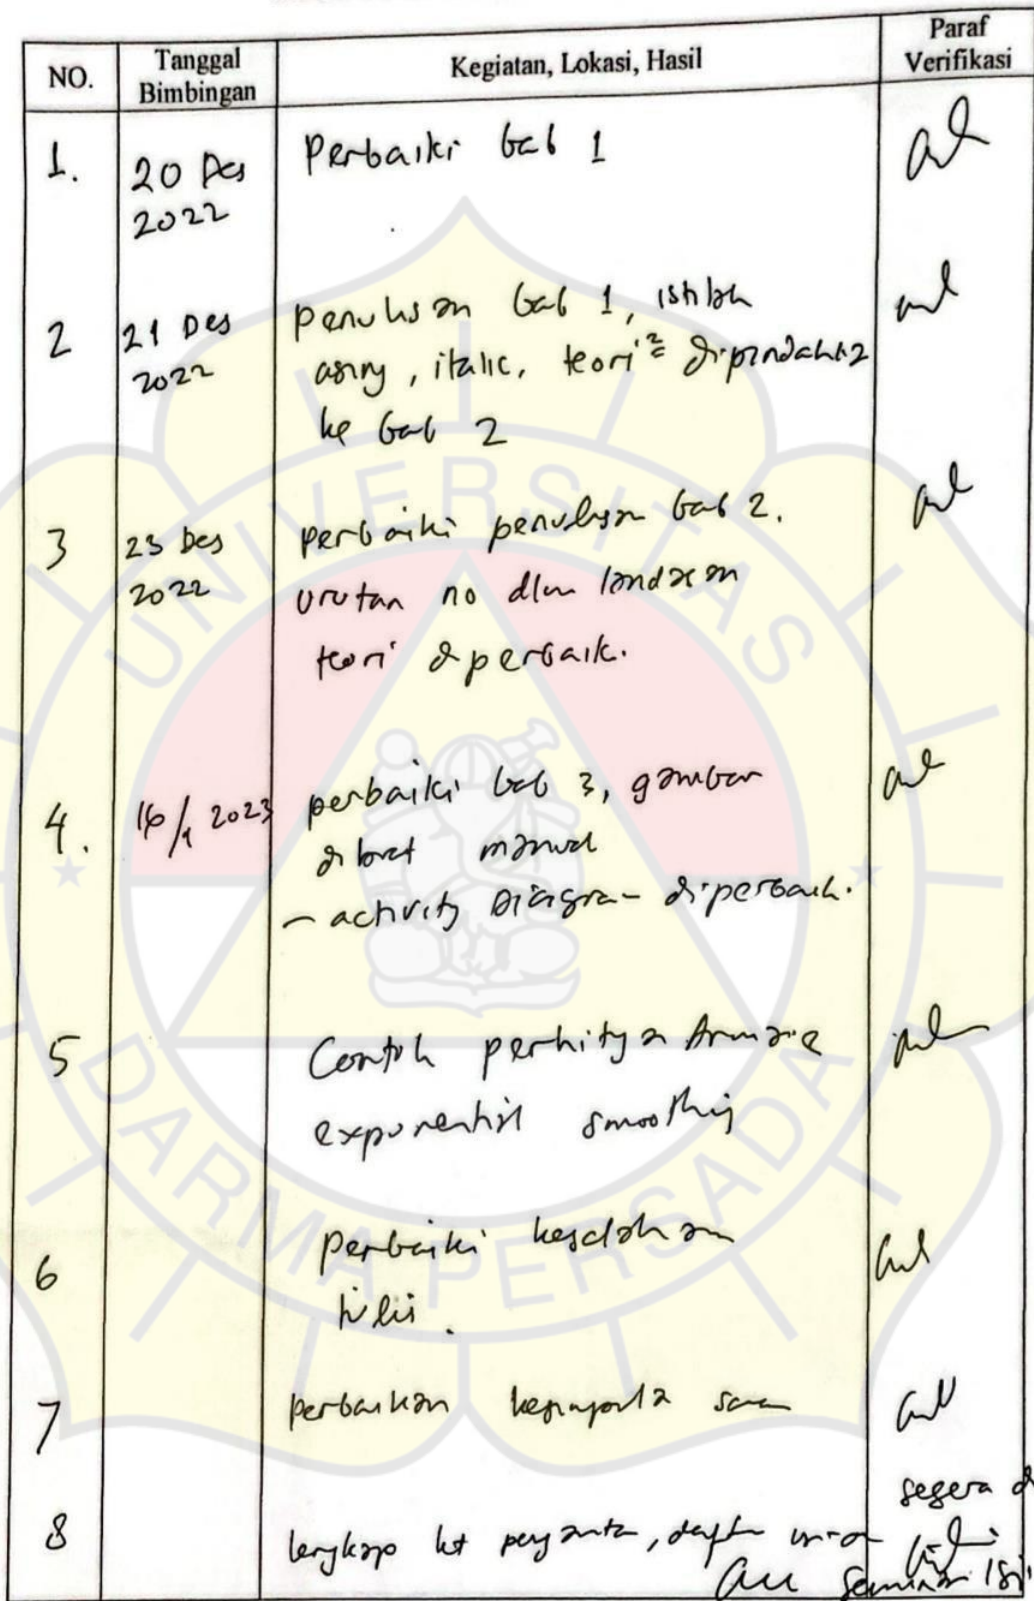 NO.
Tanggal Bimbingan
Kegiatan, Lokasi, Hasil
Paraf Verifikasi
1.
20 Des 2022
Perbaiki bab 1
2
21 Des 2022
penulisan bab 1, istilah
asing, italic, teori² dipindahkan
ke bab 2
3
23 Des 2022
perbaiki penulisan bab 2.
urutan no dlm landasan
teori diperbaik.
4.
2023
perbaiki bab 3, gambar
dibuat manual
- activity Diagram diperbaik.
5
Contoh perhitungan
exponential smoothing
6
perbaiki kesalahan
tulis.
7
perbaikan kesimpulan saran
8
lengkapi kt pengantar, daftar
segera
acc seminar isi
UNIVERSITAS
DARMA PERSADA